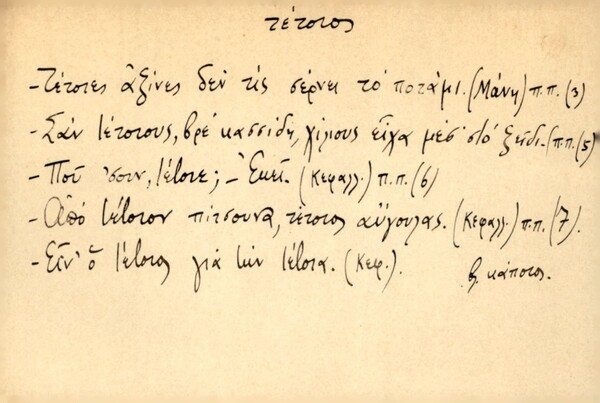 τέτοιος
- Τέτοιες ἀξίνες δὲν τὶς σέρνει τὸ ποτάμι. (Μάνη) π.π. (3)
- Σὰν τέτοιους, βρὲ κασσίδη, χίλιους εἶχα μέσ' στὸ ξείδι. (π.π. (5)
- Ποῦ 'σουν, τέτοιε; - Ἐκεῖ. (Κεφαλλ.) π.π. (6)
- Ἀπὸ τέτοιον πίτσουνα, τέτοιος αὔγουλας. (Κεφαλλ.) π.π. (7).
- Εἶν' ὁ τέτοιος γιὰ τὴν τέτοια. (Κεφ.).
β. κάποιος.